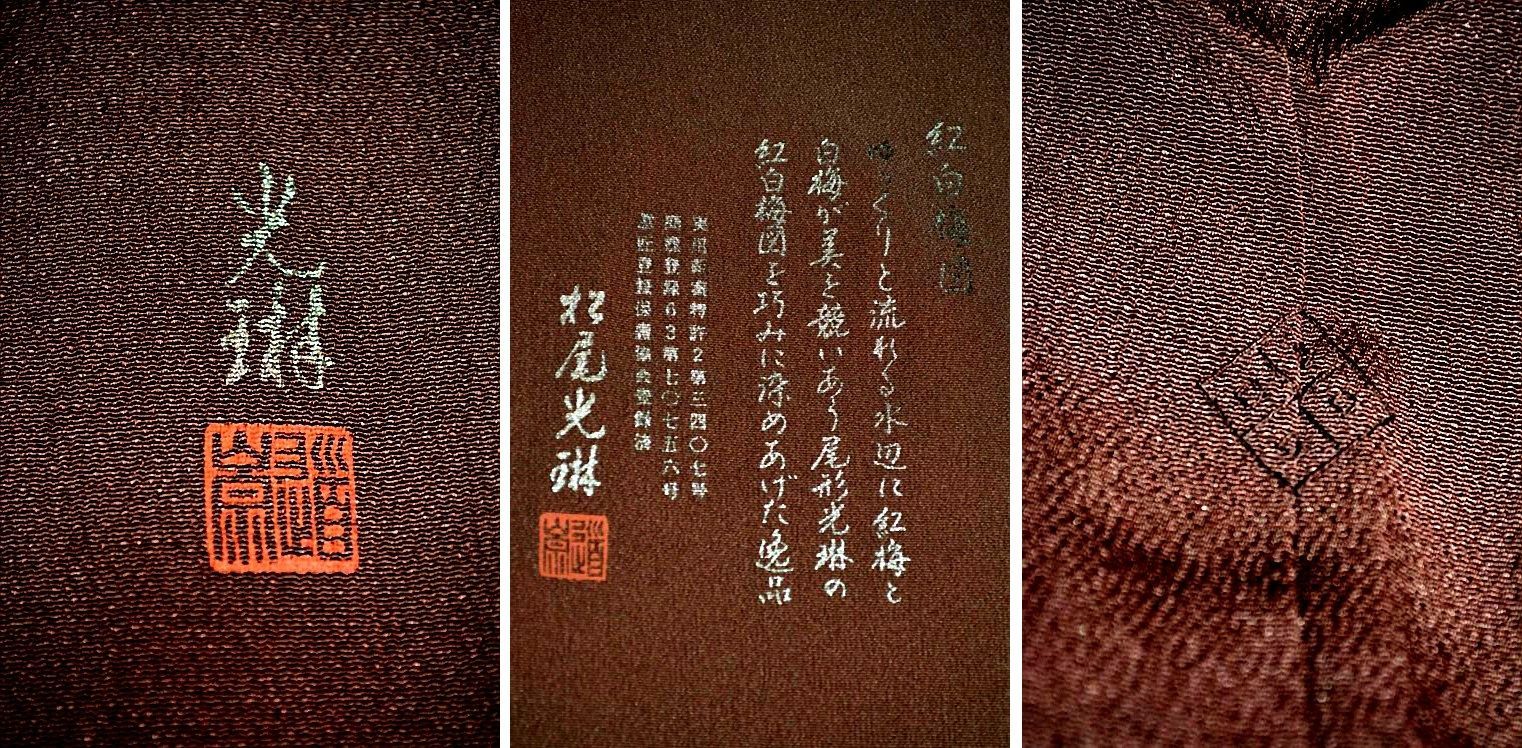 光琳
紅白梅流
ゆっくりと流れる水辺に紅梅と
白梅が美を競いあう尾形光琳の
紅白梅図を巧みに染めあげた逸品
実用新案特許2第三四〇七号
商標登録63第七〇七五八号
意匠登録保護協会登録済
松尾光琳